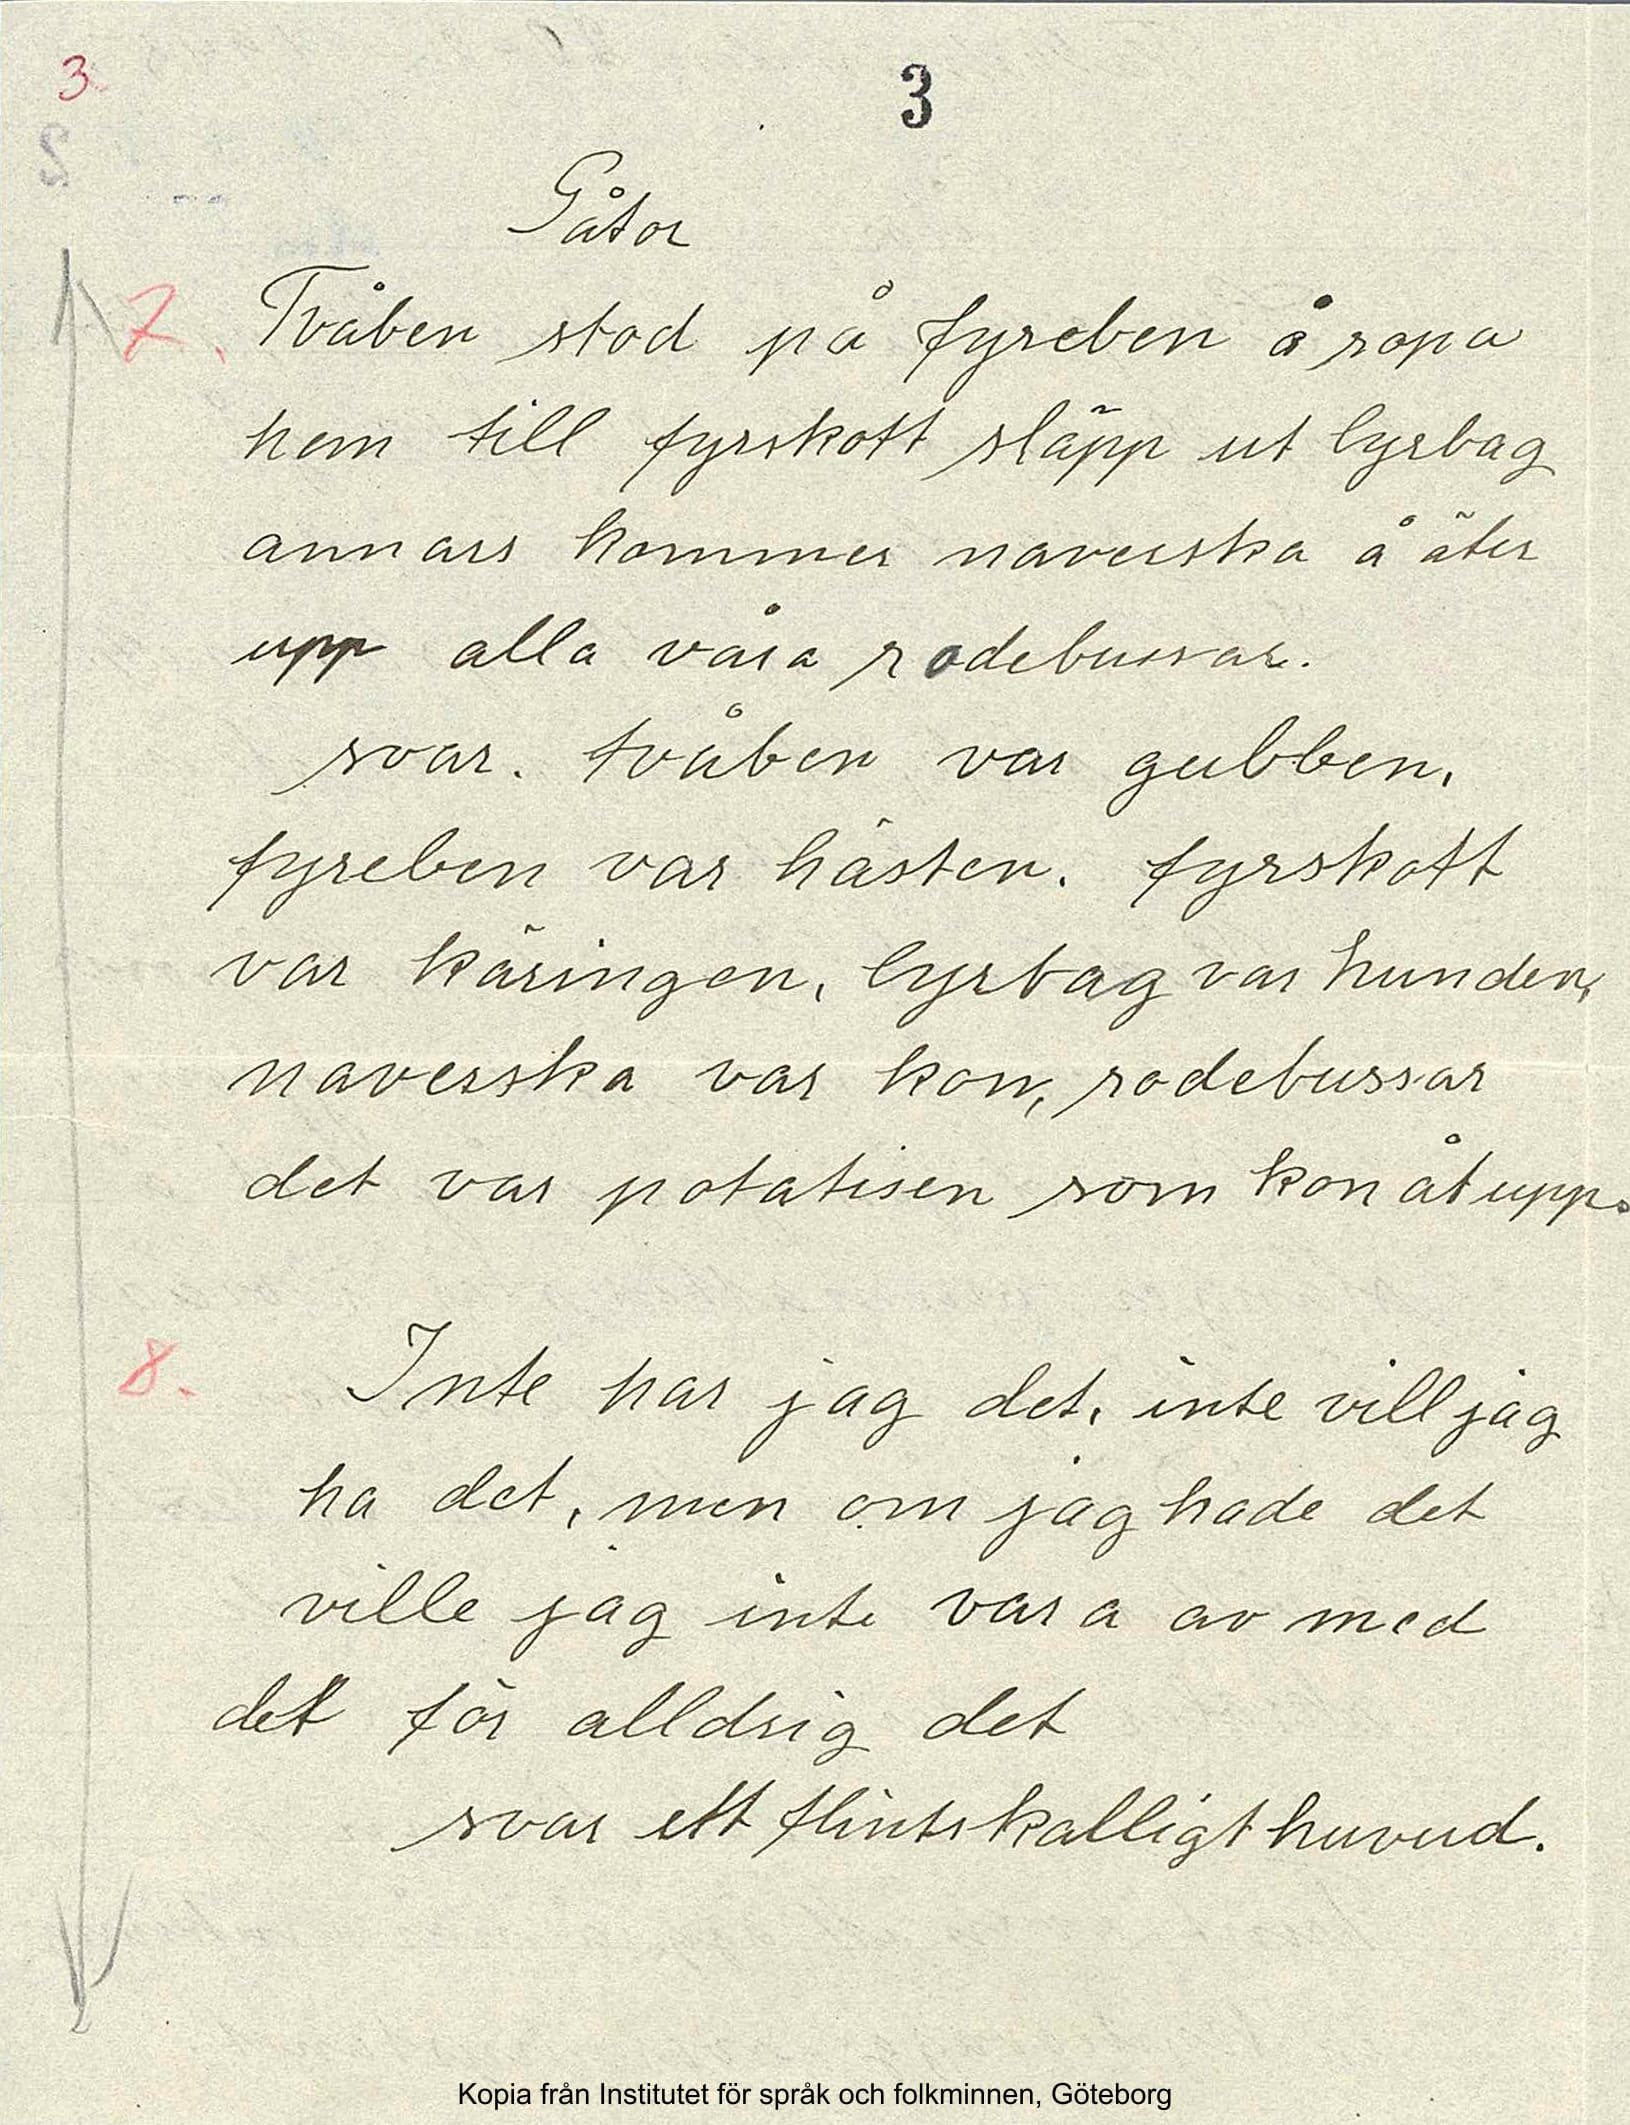 3
3
Gåtor
7. Tvåben stod på fyreben å ropa
hem till fyrskott släpp ut lyrbag
annars kommer naverska å äter
upp alla våra rodebussar.
svar. tvåben var gubben,
fyreben var hästen. fyrskott
var käringen, lyrbag var hunden,
naverska var kon, rodebussar
det var potatisen som kon åt upp.
8. Inte har jag det, inte vill jag
ha det, men om jag hade det
ville jag inte vara av med
det för alldrig det
svar ett flintskalligt huvud.
Kopia från Institutet för språk och folkminnen, Göteborg